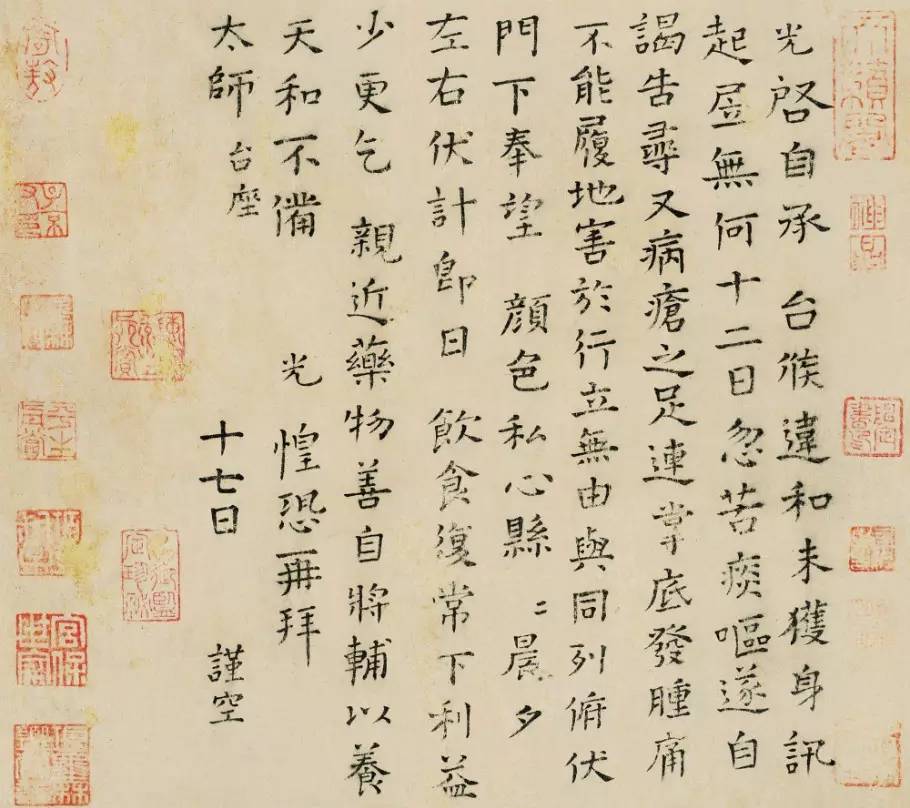 光啓自承 台候違和未獲身訊
起居無何十二日忽苦痰嘔遂自
謁告尋又病瘡之足連掌底發腫痛
不能履地害於行立無由與同列俯伏
門下奉望 顏色私心縣〻晨夕
左右伏計即日 飲食復常下利益
少更乞 親近藥物善自將輔以養
天和不備 光 惶恐再拜
太師 台座 十七日 謹空